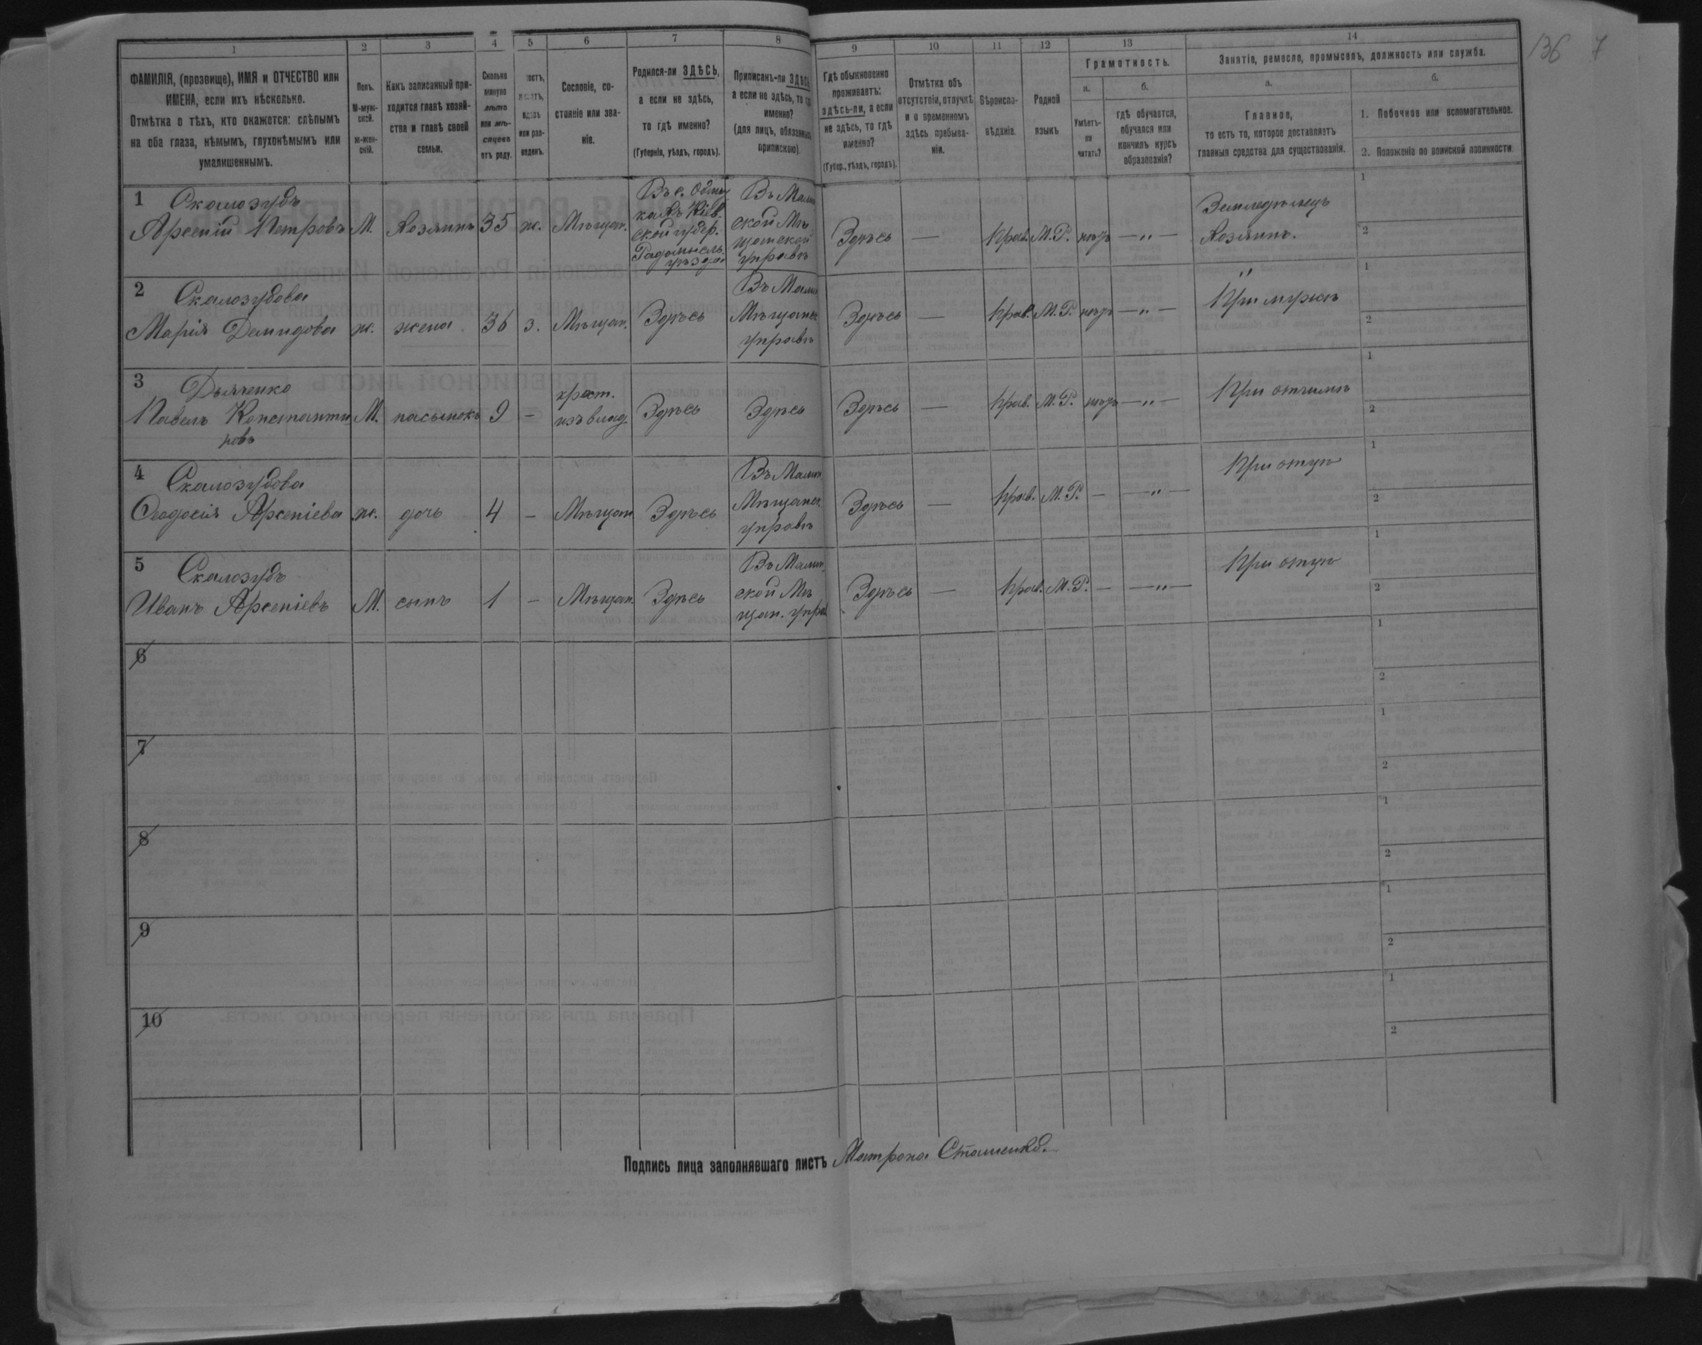 136 7
1 2 3 4 5 6 7 8 9 10 11 12 13 14
ФАМИЛІЯ, (прозвище), ИМЯ и ОТЧЕСТВО или
ИМЕНА, если ихъ нѣсколько.
Отмѣтка о тѣхъ, кто окажется: слѣпымъ
на оба глаза, нѣмымъ, глухонѣмымъ или
умалишеннымъ.
Полъ.
М-муж-
ской.
ж-жен-
скій.
Какъ записанный при-
ходится главѣ хозяй-
ства и главѣ своей
семьи.
Сколько
минуло
лѣтъ
или мѣ-
сяцевъ
отъ роду.
или раз-
веденъ.
Сословіе, со-
стояніе или зва-
ніе.
Родился-ли ЗДѢСЬ,
а если не здѣсь,
то гдѣ именно?
(Губернія, уѣздъ, городъ).
Приписанъ-ли ЗДѢСЬ
а если не здѣсь, то гдѣ
именно?
(для лицъ, обязанныхъ
припискою).
Гдѣ обыкновенно
проживаетъ:
здѣсь-ли, а если
не здѣсь, то гдѣ
именно?
(Губер., уѣздъ, городъ).
Отмѣтка объ
отсутствіи, отлучкѣ
и о временномъ
здѣсь пребыва-
ніи.
Вѣроиспо-
вѣданіе.
Родной
языкъ.
Грамотность.
а.
Умѣетъ-
ли
читать?
б.
гдѣ обучается,
обучался или
кончилъ курсъ
образованія?
Занятіе, ремесло, промыселъ, должность или служба.
а.
Главное,
то есть то, которое доставляетъ
главныя средства для существованія.
б.
1. Побочное или вспомогательное.
2. Положеніе по воинской повинности.
1 Скалозубъ
Арсеній Петровъ М. Хозяинъ 35 ж. Мѣщан.
ской губер.
уѣзда
ской Мѣ
щанской
управѣ
Здѣсь — Прав. М.Р. нѣтъ — „ —
Земледѣлецъ
Хозяинъ.
1
2
2 Скалозубова
Марія Демидова ж. жена 36 з. Мѣщан. Здѣсь
Мѣщанс
управѣ
Здѣсь — Прав. М.Р. нѣтъ — „ —
„
При мужѣ
1
2
3 Дьяченко
Павелъ Константи
новъ
М. пасынокъ 9 —
крест.
изъ влад.
Здѣсь Здѣсь Здѣсь — Прав. М.Р. нѣтъ — „ — При отчимѣ
1
2
4 Скалозубова
Феодосія Арсеніева ж. дочь 4 — Мѣщан. Здѣсь
Мѣщанс
управѣ
Здѣсь — Прав. М.Р. — — „ — При отцѣ
1
2
5 Скалозубъ
Иванъ Арсеніевъ М. сынъ 1 — Мѣщан. Здѣсь
ской Мѣ
щан. упра
Здѣсь — Прав. М.Р. — — „ — При отцѣ
1
2
6
1
2
7
1
2
8
1
2
9
1
2
10
1
2
Подпись лица заполнявшаго листъ